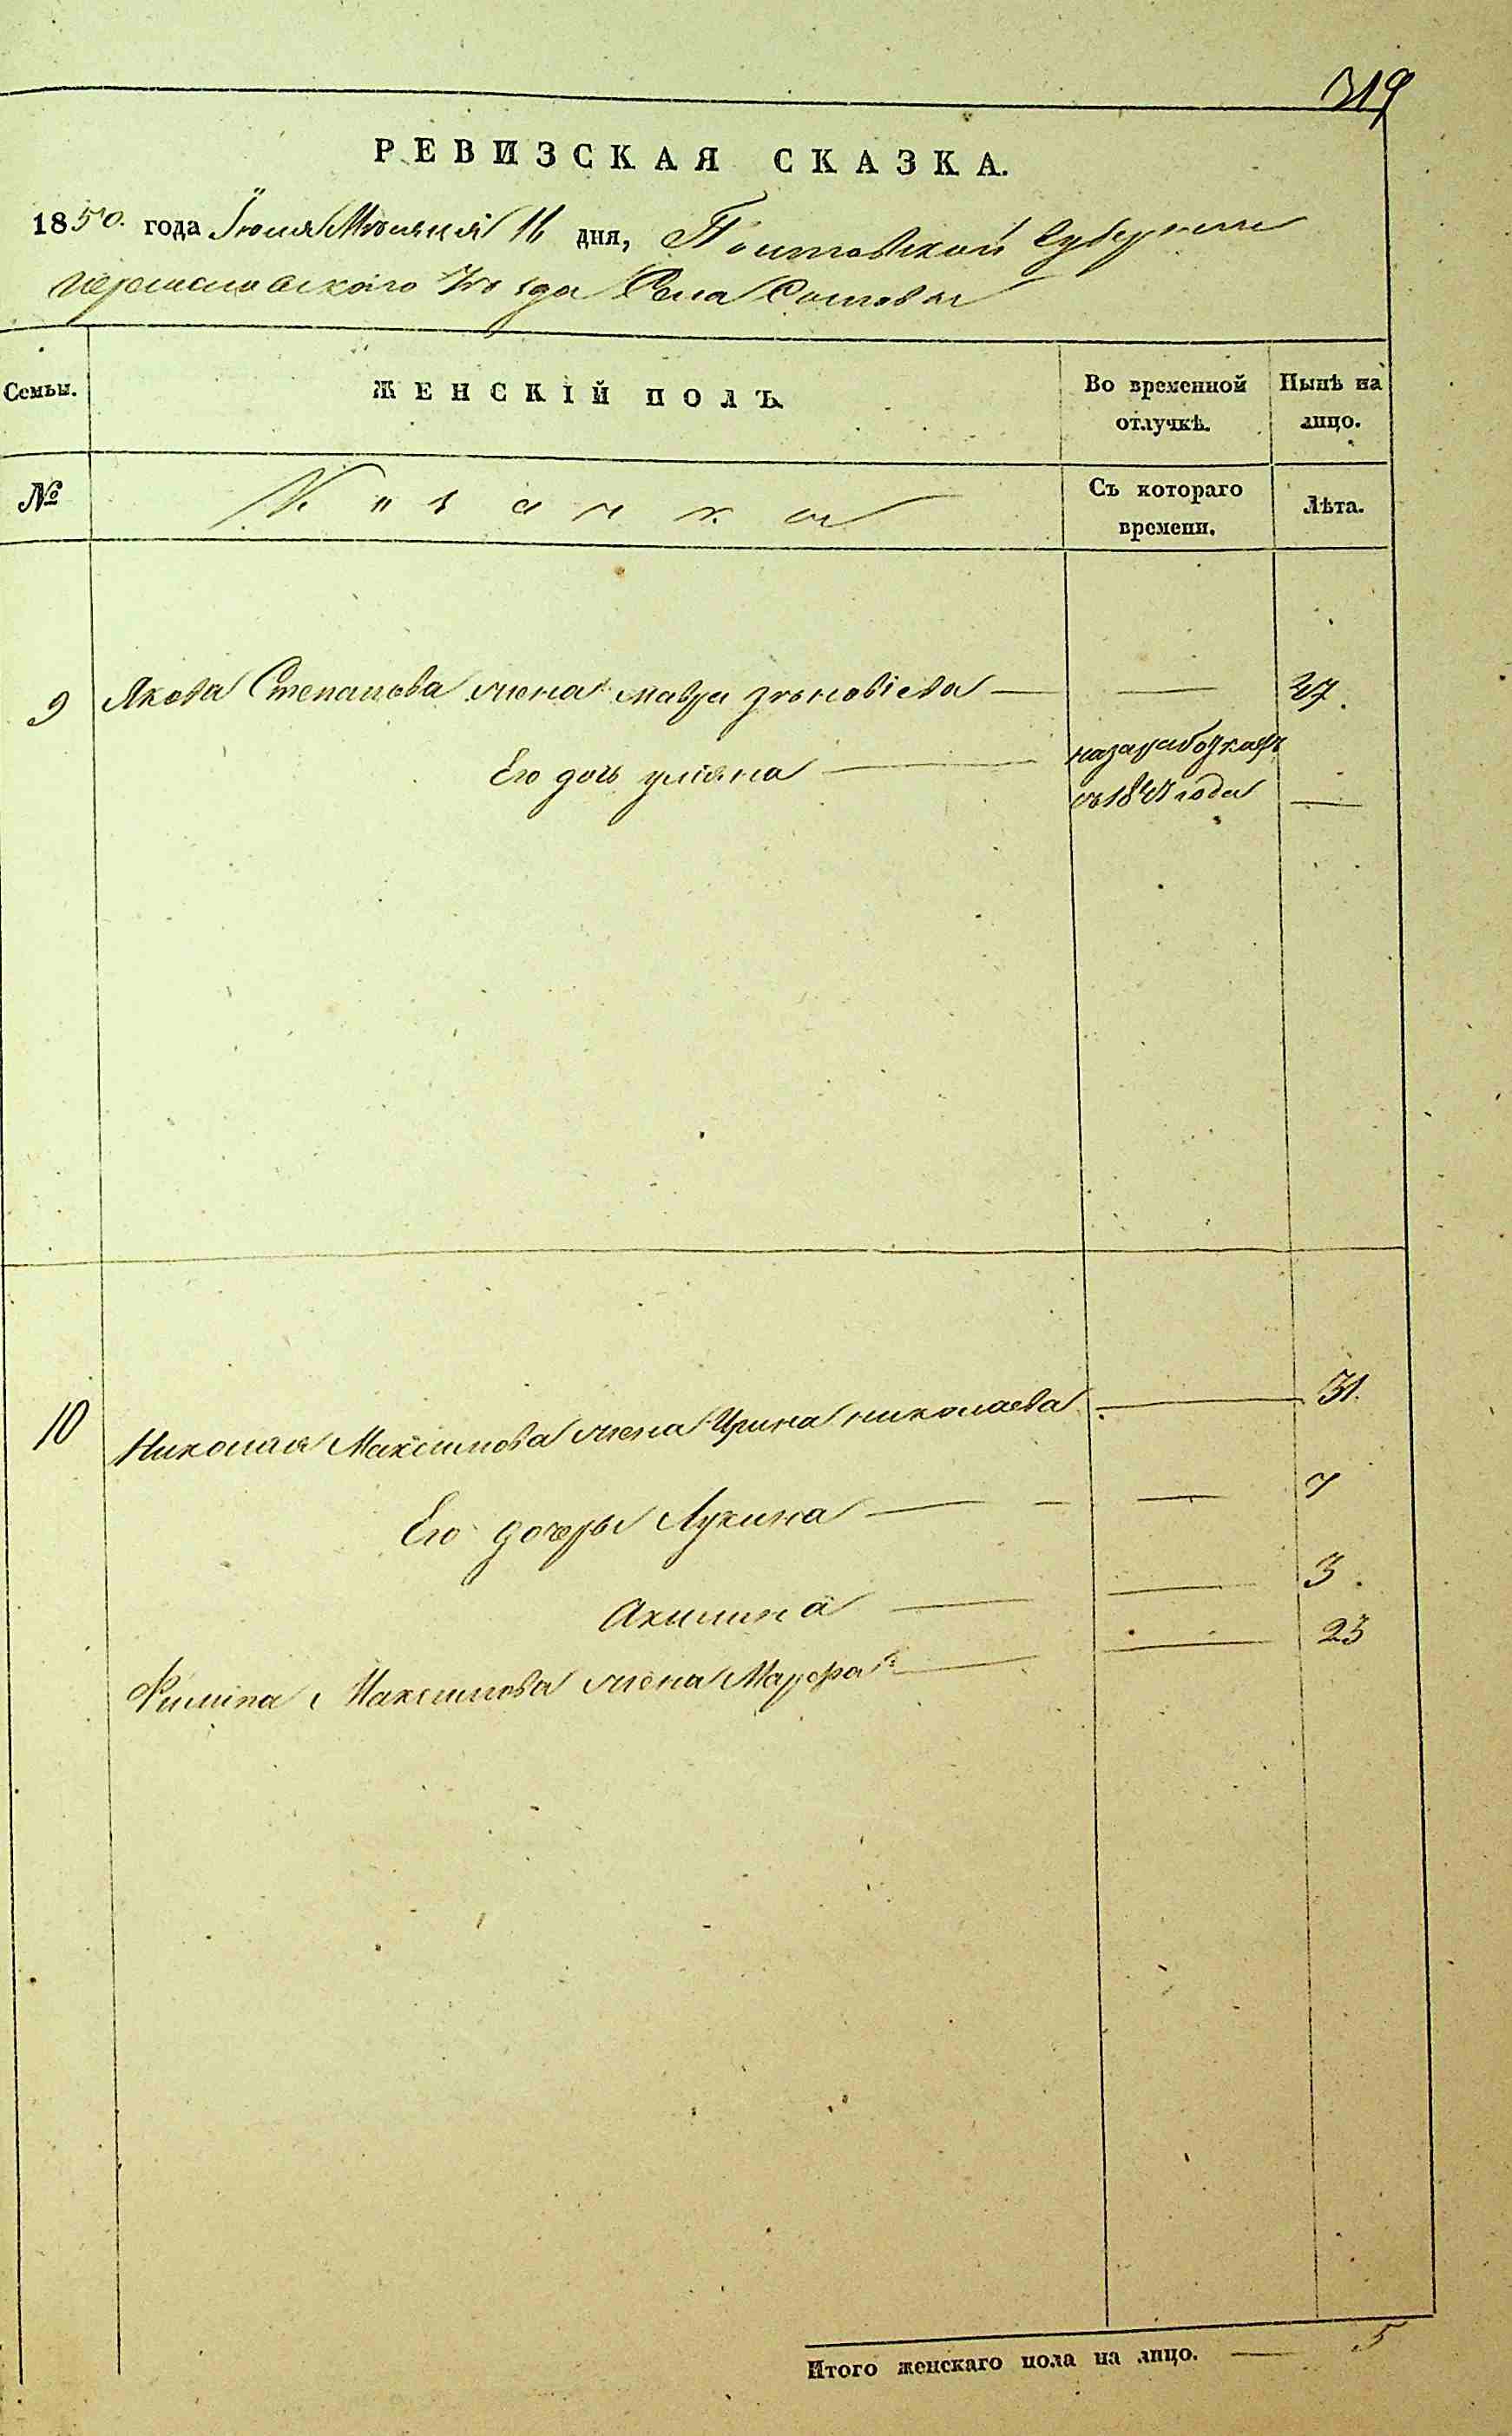 319
РЕВИЗСКАЯ СКАЗКА.
1850. года Іюля Мѣсяця 16 дня, Полтавской Губернии
Переясловского Уѣзда Села Сотовки
Семьи. ЖЕНСКІЙ ПОЛЪ Во временной отлучкѣ. Нынѣ на лицо.
№ Козачки Съ котораго времени. Лѣта.
9 Якова Степанова жена мавра зѣновіева — — 47.
Его дочь уліяна — на заработкахъ
съ 1847 года —
10 Николая Максимова жена Ирина николаева — 31.
Его дочеры Лукина — — — 7
Акилина — — 3.
Филипа Максимова жена Марфа — — 23
Итого женскаго пола на лицо. — 5